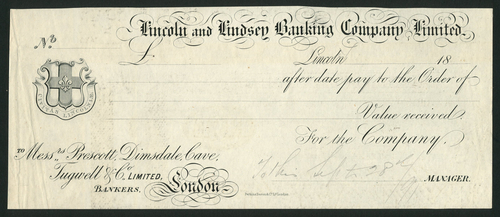 Lincoln and Lindsey Banking Company, Limited.
No.
£ Lincoln 18
after date pay to the Order of
CIVITAS LINCOLNIA
Value received
For the Company.
To Messrs Prescott, Dimsdale, Cave,
Tugwell & Co. LIMITED,
BANKERS, London
Sept 28th
MANAGER.